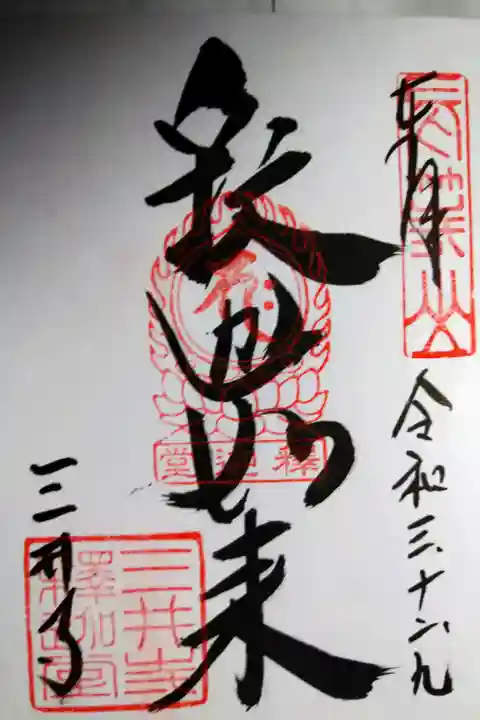 奉拝
長等山
令和三、十
釈迦如来
釋迦堂
三井寺
三井寺
釋迦堂